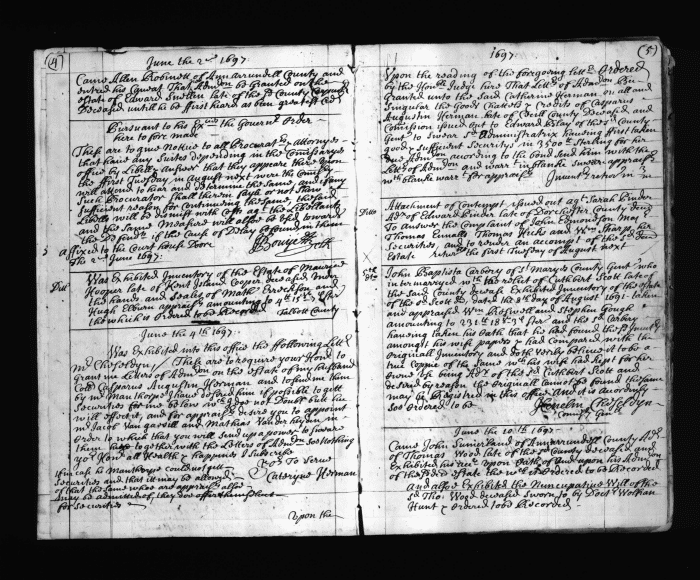 (4)
June the 2d 1697
Came Allen Robinett of Annarrundell County and
entred his Caveat That Admcon be granted on the
Estate of Edward Smellen late of the sd County
Deceased untill he be first heard as
Pursuant to his Ex the Governrs Order
here to fore made
These are to give Nottice to all Procuratrs & Attorneys
that have any Suites depending in the Comissarys
office by Libell & answer that they appeare there upon
the first Tuesday in August next where the Comissry
will attend to hear and determine the same and if any
Such Procurator shall therein faile or not shew
sufficient reason for Continueing the same, the said
Libells will be dismist with Costs agt the
and the same Measures will allso be used toward
the Defendt if the Cause of Delay be found in them
affixed to the Court house Doore
The 2d June 1697.
Ditto
Was Exhibited Inventory of the Estate of Maurice
Hooper late of Kent Island Cooper deceased under
the hands and seales of Mathw Errickson and
Hugh Elborn appraisrs amounting to
the which is ordered to be Recorded Tallbott County
June the 4th 1697.
Was Exhibited into this office the following Lettr
Mr Cheseldyn, These are to require your Honr to
Grant me Letters of Admcon on the estate of my husband
Colo Casparus Augustin Herman and to send me them
by Mr Manthorpe I have desired him if possible to gitt
Securities for me be Low wch I doe not Doubt but he
will effect it, and for appraisrs desire you to appoint
Mr Jacob Van gavill and Mathias Vanderheyden in
order to which that you will send up a power to sweare
them together with the Letters of Admcon soe wishing
yor Honr all Health & happiness I subscribe
Yors To Serve
Cateryne Herman
if in case Mr Manthorpe could not gitt
Securities and that it may be allowed
of that the same who are appraisrs allso
may be admitted if they doe offer themselves
for securities
Upon the
(5)
1697
Upon the reading of the foregoing Lettr Ordered
by the Honble Judge here That Lettrs of Admcon be
Granted unto the said Catherine Herman on all and
Singular the Goods Chattells & Credits of Casparus
Augustin Herman late of Cecill County Deceased and
Comission issued out to Edward Blay of the sd County
Gent to swear sd Administratrix haveing first taken
good & sufficient Securitys in 3500 sterling for her
due Admcon according to the bond send him with the
Lettrs of Admcon and warrt in blancke swear appraisrs
wth blancke warrt for appraisrs
Ditto
Attachment of Contempt issued out agt Sarah Pinder
Admx of Edward Pinder late of Dorchester County Decd
To answer the Complaint of John Edmondson
Thomas Ennalls Thomas Hicks and Wm Sharpe her
Securities, and to render an accompt of the sd
Estate returne the first Tuesday of August next
John Baptista Carbery of St Marys County Gent who
intermarryed wth the relict of Cuthbert Scott late of
the said County deceased Exhibited Inventory of the Estate
of the sd Scott dated the 8th day of August 1691. taken
and appraised Wm Rosewell and Stephen Gough
amounting to 231£ 18s 3d sterl and the sd Carbery
haveing taken his Oath that he had found the sd Invent
amongst his wife papers & had Compared with the
originall Inventory and doth Verily believe it to be a
true Coppie of the same wch his wife had kept for her
owne use being Exx of the sd Cuthbert Scott and
desired by reason the originall cannot be found the same
may be registred in this office and it is accordingly
soe ordered to be
Kenelm Cheseldyn
June the 10th 1697.
Came John Summerland of Annarrundell County Admr
of Thomas Wood late of the sd County deceased and
Exhibited his Accot Upon Oath of and upon his Admcon
of the sd Deceds Estate the wch Ordered to be Recorded
And allso Exhibited the Nuncupative Will of the
sd Tho: Wood deceased sworn to by Doctr Wolfran
Hunt & Ordered to be Recorded